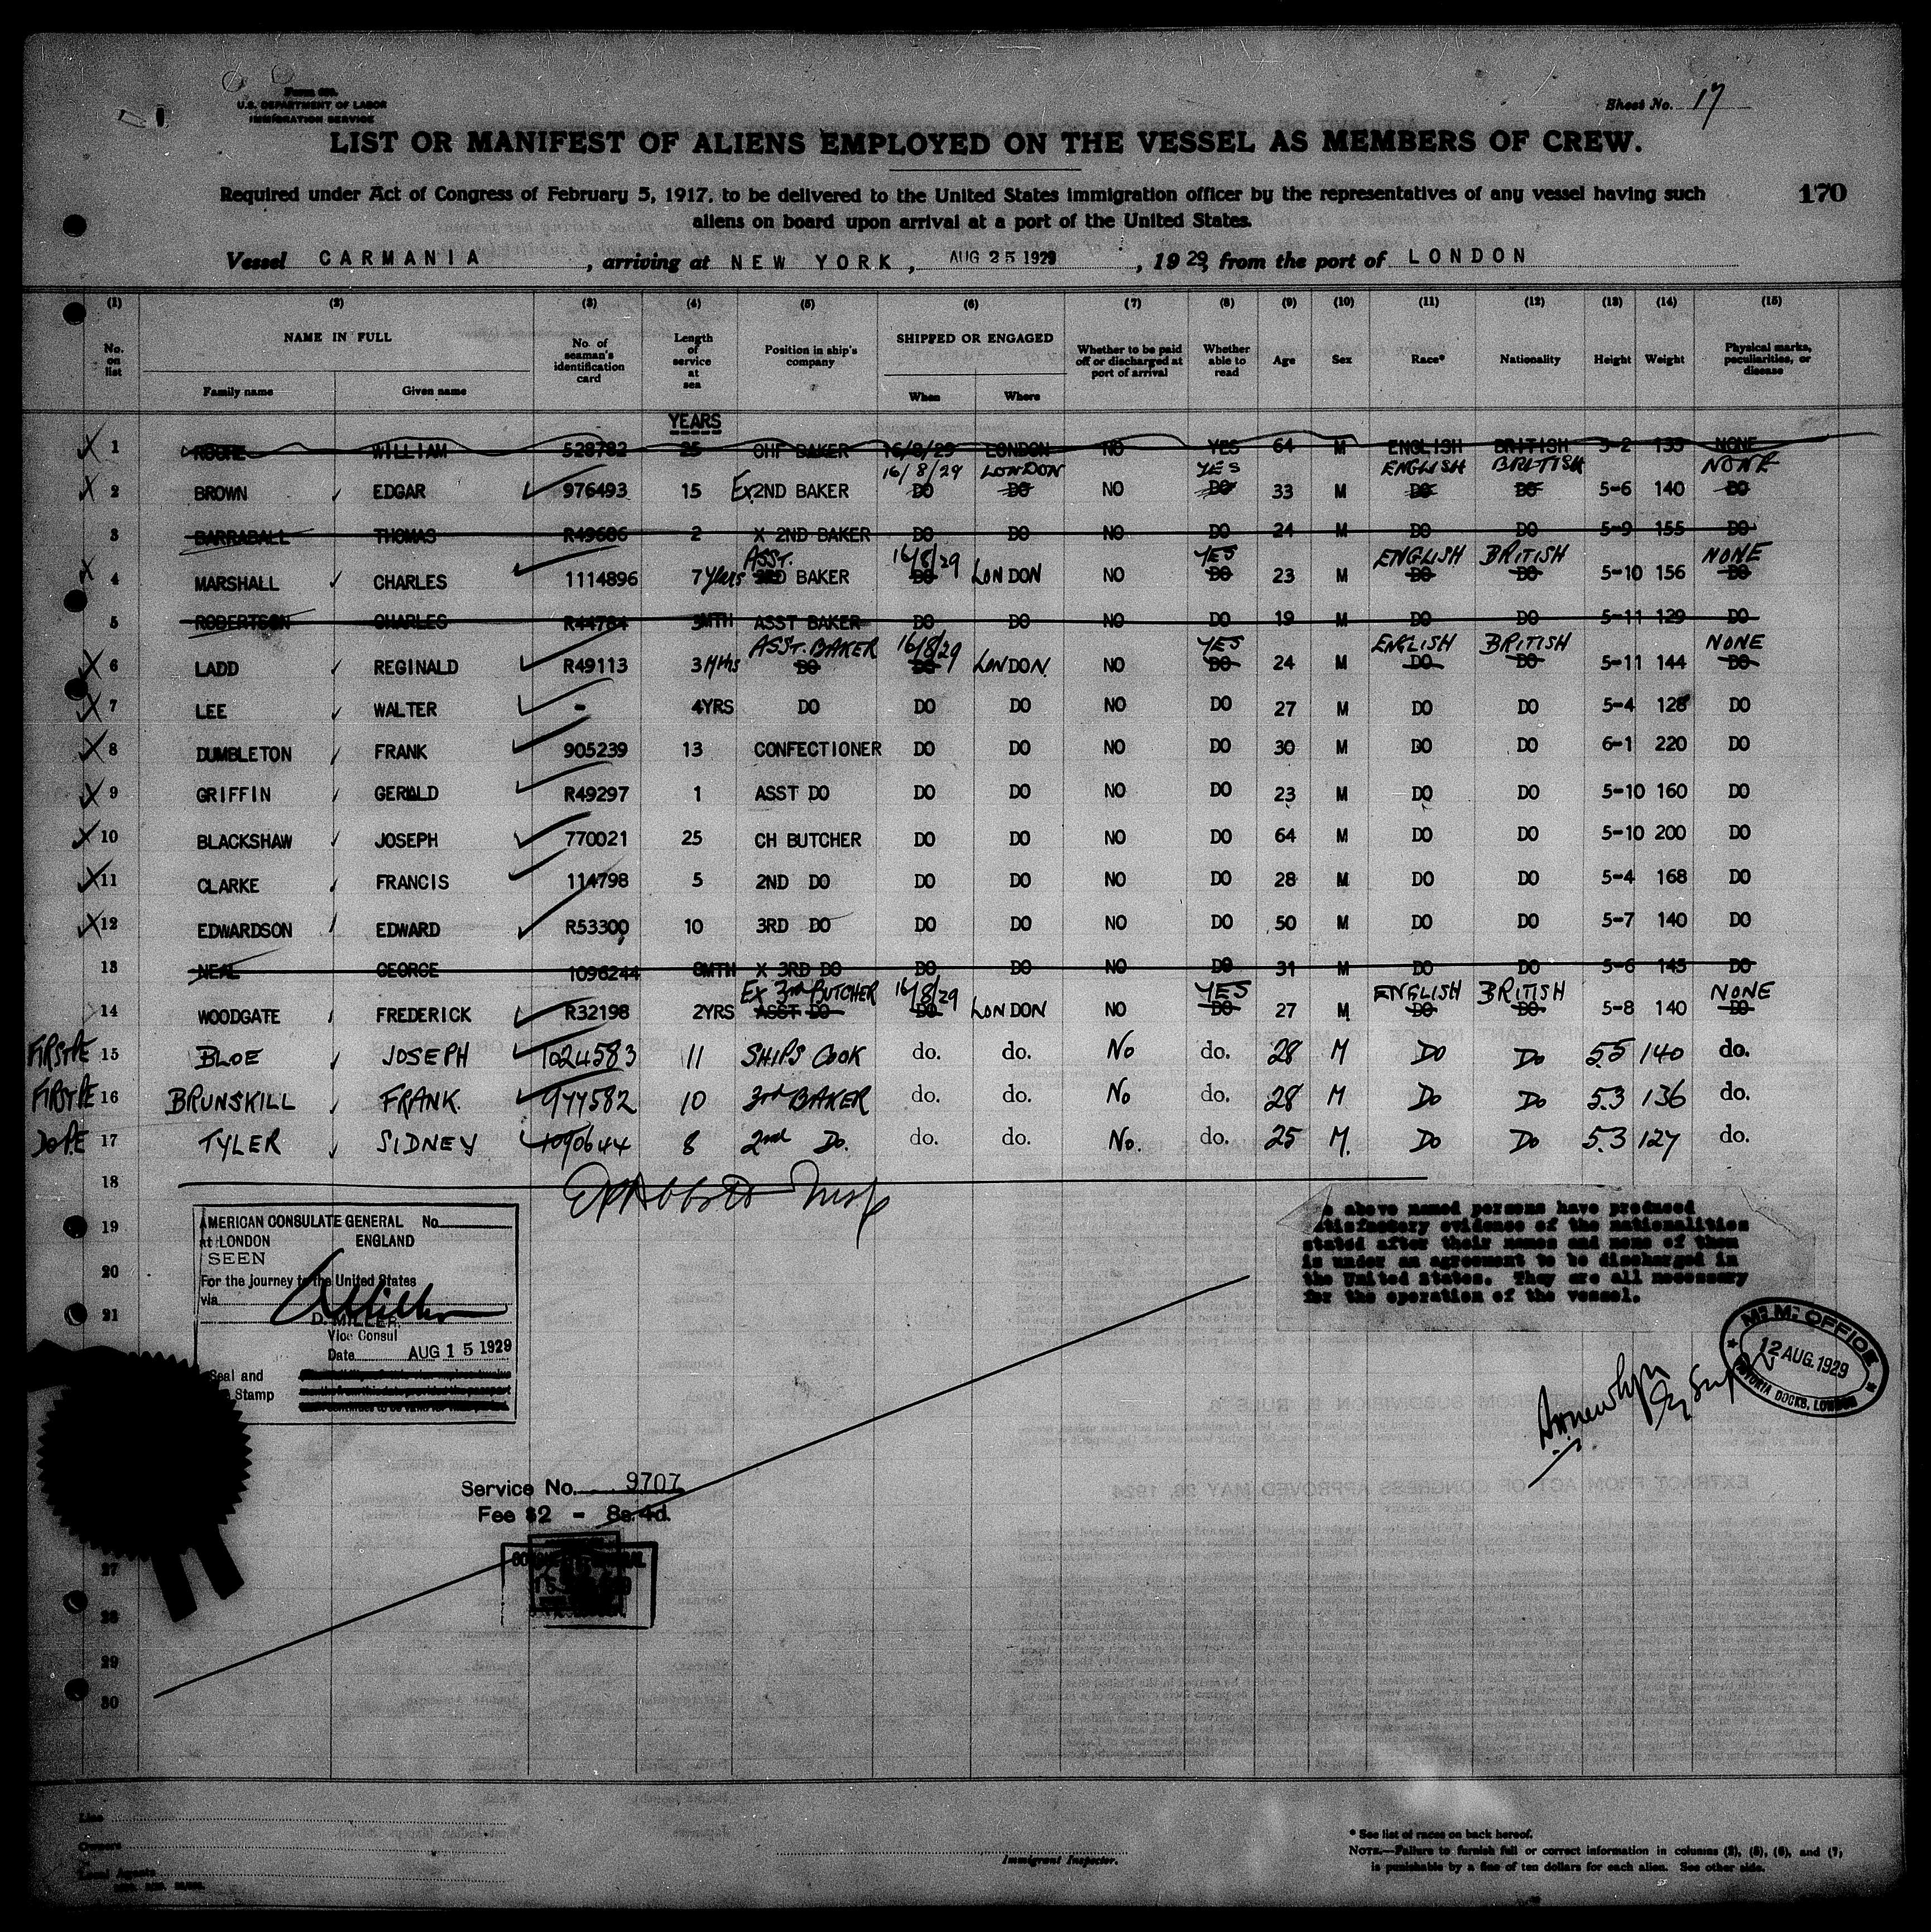 Sheet No. 17
U.S. DEPARTMENT OF LABOR
IMMIGRATION SERVICE
LIST OR MANIFEST OF ALIENS EMPLOYED ON THE VESSEL AS MEMBERS OF CREW.
Required under Act of Congress of February 5, 1917, to be delivered to the United States immigration officer by the representatives of any vessel having such
aliens on board upon arrival at a port of the United States.
170
Vessel CARMANIA, arriving at NEW YORK, AUG 25 1929, 1929, from the port of LONDON
(1) (2) (3) (4) (5) (6) (7) (8) (9) (10) (11) (12) (13) (14) (15)
No. on list NAME IN FULL Family name Given name No. of seaman's identification card Length of service at sea Position in ship's company SHIPPED OR ENGAGED When Where Whether to be paid off or discharged at port of arrival Whether able to read Age Sex Race* Nationality Height Weight Physical marks, peculiarities, or disease
YEARS
1 ROCHE WILLIAM 528782 25 CHF BAKER 16/8/29 LONDON NO YES 64 M ENGLISH BRITISH 5-2 135 NONE
16/8/29 LONDON YES ENGLISH BRITISH NONE
2 BROWN EDGAR 976493 15 Ex 2ND BAKER DO DO NO DO 33 M DO DO 5-6 140 DO
3 BARRABALL THOMAS R49686 2 X 2ND BAKER DO DO NO DO 24 M DO DO 5-9 155 DO
ASST. 16/8/29 YES ENGLISH BRITISH NONE
4 MARSHALL CHARLES 1114896 7 Years 3RD BAKER DO LONDON NO DO 23 M DO DO 5-10 156 DO
5 ROBERTSON CHARLES R44784 3MTH ASST BAKER DO DO NO DO 19 M DO DO 5-11 129 DO
ASST. BAKER 16/8/29 YES ENGLISH BRITISH NONE
6 LADD REGINALD R49113 3 Mths DO DO LONDON NO DO 24 M DO DO 5-11 144 DO
7 LEE WALTER - 4YRS DO DO DO NO DO 27 M DO DO 5-4 128 DO
8 DUMBLETON FRANK 905239 13 CONFECTIONER DO DO NO DO 30 M DO DO 6-1 220 DO
9 GRIFFIN GERALD R49297 1 ASST DO DO DO NO DO 23 M DO DO 5-10 160 DO
10 BLACKSHAW JOSEPH 770021 25 CH BUTCHER DO DO NO DO 64 M DO DO 5-10 200 DO
11 CLARKE FRANCIS 114798 5 2ND DO DO DO NO DO 28 M DO DO 5-4 168 DO
12 EDWARDSON EDWARD R53300 10 3RD DO DO DO NO DO 50 M DO DO 5-7 140 DO
13 NEAL GEORGE 1096244 8MTH X 3RD DO DO DO NO DO 31 M DO DO 5-6 145 DO
Ex 3rd BUTCHER 16/8/29 YES ENGLISH BRITISH NONE
14 WOODGATE FREDERICK R32198 2YRS ASST DO DO LONDON NO DO 27 M DO DO 5-8 140 DO
FIRST PE 15 BLOE JOSEPH 1024583 11 SHIPS COOK do. do. No do. 28 M Do Do 5.5 140 do.
FIRST PE 16 BRUNSKILL FRANK. 977582 10 3rd BAKER do. do. No do. 28 M Do Do 5.3 136 do.
Do P.E 17 TYLER SIDNEY 1090644 8 2nd Do. do. do. No. do. 25 M. Do Do 5.3 127 do.
18
19
20
21
27
28
29
30
AMERICAN CONSULATE GENERAL No.
At LONDON ENGLAND
SEEN
For the journey to the United States
via
D. MILLER.
Vice Consul
Date AUG 15 1929
Seal and
Stamp
above named persons have produced
satisfactory evidence of the nationalities
stated after their names and none of them
is under an agreement to be discharged in
the United States. They are all necessary
for the operation of the vessel.
M. M. OFFICE
12 AUG. 1929
VICTORIA DOCKS, LONDON
Service No. 9707
Fee $2 - 8s.4d.
Line
Owners
Local Agents
Immigrant Inspector.
* See list of races on back hereof.
NOTE.—Failure to furnish full or correct information in columns (2), (5), (6), and (7)
is punishable by a fine of ten dollars for each alien. See other side.